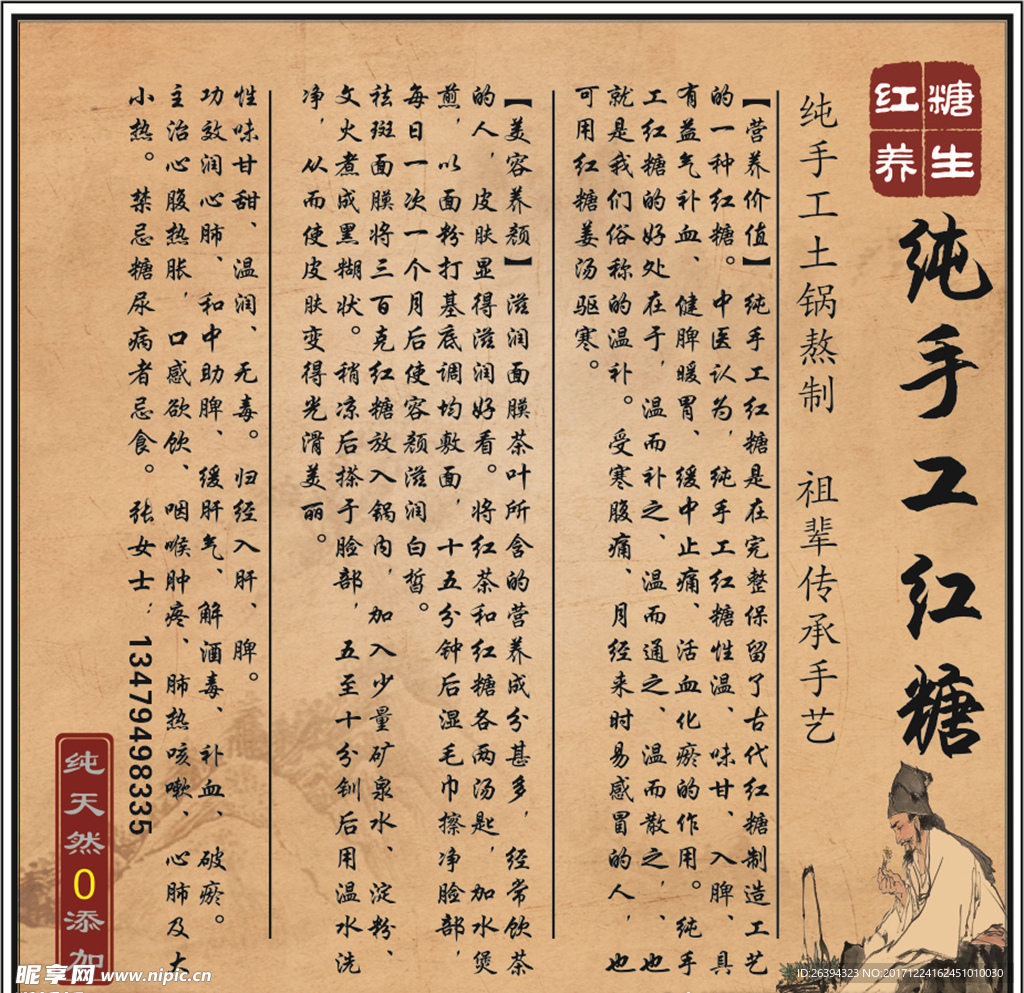 红糖
养生
纯手工红糖
纯手工土锅熬制 祖辈传承手艺
【营养价值】纯手工红糖是在完整保留了古代红糖制造工艺
的一种红糖。中医认为,纯手工红糖性温、味甘、入脾、具
有益气补血、健脾暖胃、缓中止痛、活血化瘀的作用。纯手
工红糖的好处在于,温而补之、温而通之、温而散之,、也
就是我们俗称的温补。受寒腹痛、月经来时易感冒的人,也
可用红糖姜汤驱寒。
【美容养颜】滋润面膜茶叶所含的营养成分甚多,经常饮茶
的人,皮肤显得滋润好看。将红茶和红糖各两汤匙,加水煲
煎,以面粉打基底调均敷面,十五分钟后湿毛巾擦净脸部,
每日一次一个月后使容颜滋润白皙。
祛斑面膜将三百克红糖放入锅内,加入少量矿泉水、淀粉、
文火煮成黑糊状。稍凉后搽于脸部,五至十分钊后用温水洗
净,从而使皮肤变得光滑美丽。
性味甘甜、温润、无毒。归经入肝、脾。
功效润心肺、和中助脾、缓肝气、解酒毒、补血、破瘀。
主治心腹热胀,口感欲饮、咽喉肿疼、肺热咳嗽、心肺及大
小热。禁忌糖尿病者忌食。张女士;13479498335
纯天然0添加
昵享网 www.nipic.cn
ID:26394323 NO:20171224162451010030